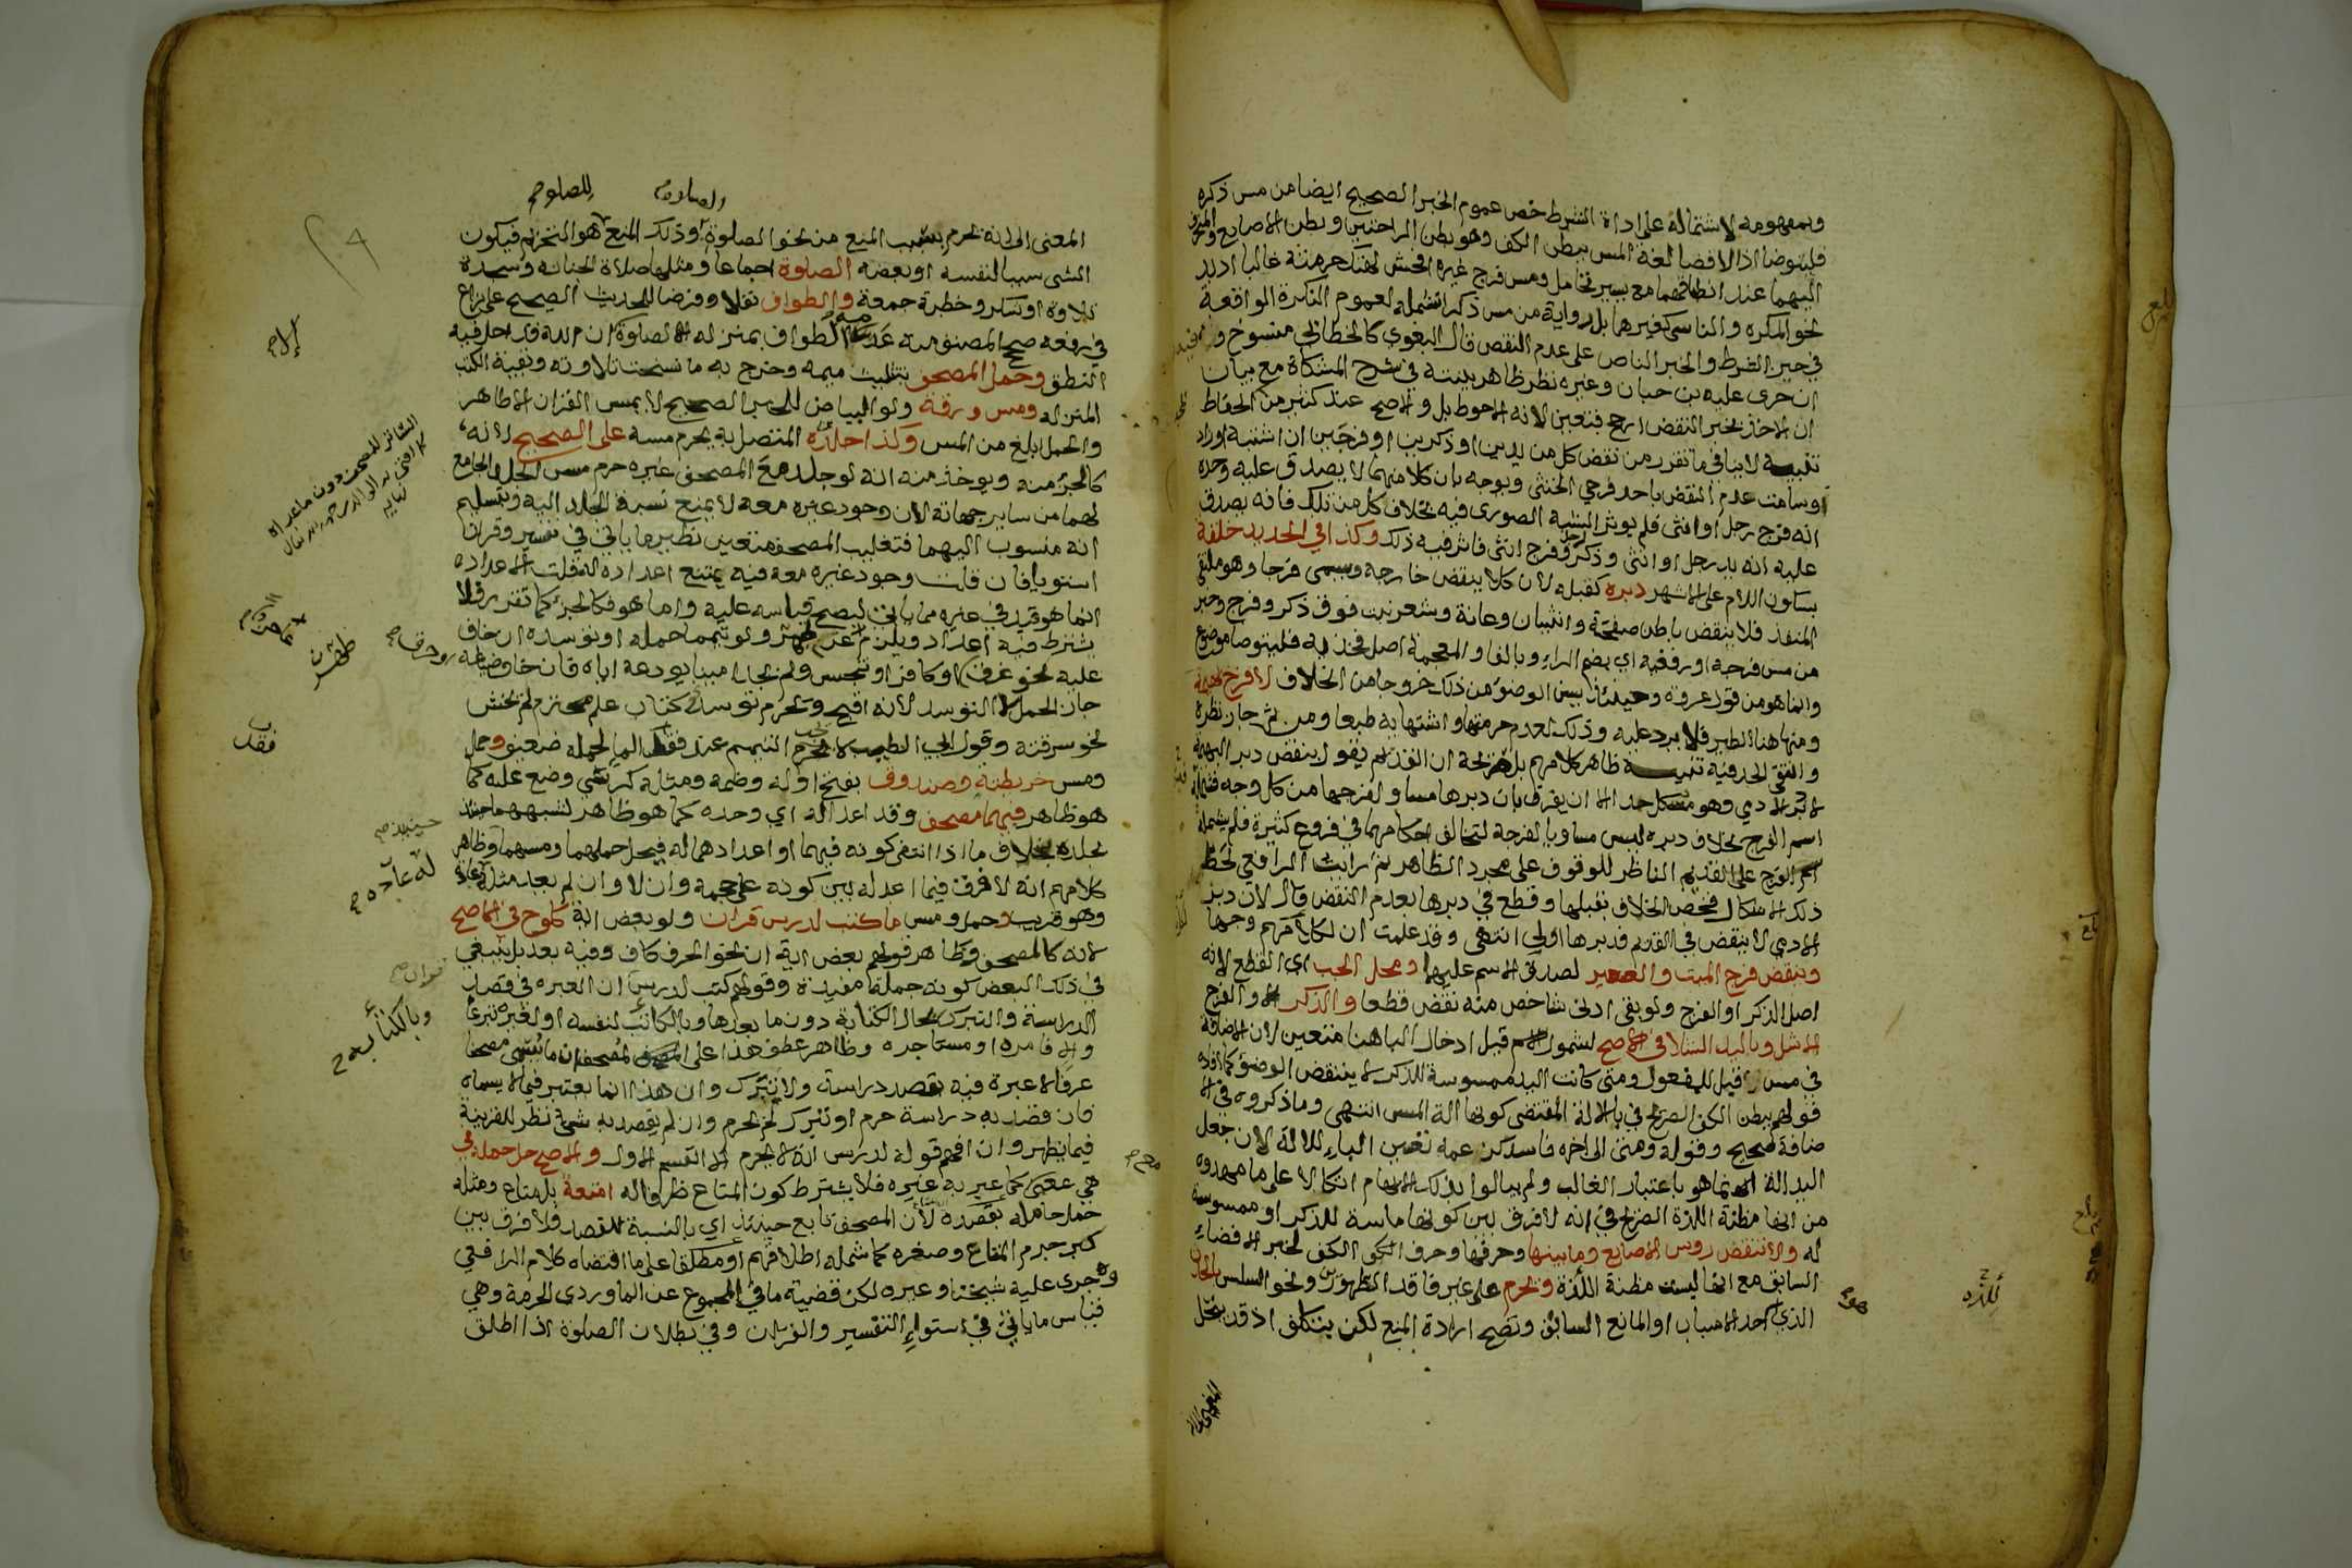 وبمفهومه لاشتماله على اداة الشرط خص عموم الخبر الصحيح ايضا من مس ذكره
فليتوضا اذ الافضا لغة المس ببطن الكف وهو بطن الراحتين وبطن الاصابع
اليهما عند انطباقهما مع يسير تحامل ومس فرج غيره افحش لهتك حرمته غالبا اذ يد
نحو المكره والناسي كغيرهما بل رواية من مس ذكرا تشمله لعموم النكرة الواقعة
في حيز الشرط والخبر الناص على عدم النقض قال البغوي كالخطابي منسوخ و
ان جرى عليه بن حبان وغيره نظر ظاهر بينته في شرح المشكاة مع بيان
ان الاخذ بخبر النقض ارجح فتعين لانه الاحوط بل والاصح عند كثير من الحفاظ
تنبيه لا ينافي ما تقرر من نقض كل من يدين او ذكرين او فرجين ان اشتبه او زاد
وسامت عدم النقض باحد فرجي الخنثى ويوجه بان كلا منهما لا يصدق عليه وحده
انه فرج رجل او انثى فلم يوثر الشبه الصوري فيه بخلاف كل من تلك فانه يصدق
عليه انه يد رجل او انثى وذكر رجل وفرج انثى فاثر فيه ذلك وكذا في الجديد حلقة
بسكون اللام على الاشهر دبره كقبله لان كلا ينقض خارجه ويسمى فرجا وهو ملتقى
المنفذ فلا ينقض باطن صفحة وانثيان وعانة وشعر نبت فوق ذكر وفرج وخبر
من مس فرجه او رفغيه اي بضم الراء وبالفاء والمعجمة اصل فخذيه فليتوضا موضوع
وانما هو من قول عروة وحينئذ يسن الوضوء من ذلك خروجا من الخلاف لا فرج بهيمة
ومنها هنا الطير فلا يرد عليه وذلك لعدم حرمتها واشتهائها به طبعا ومن ثم جاز نظره
وانتفى الحد فيه تنبيه ظاهر كلامهم بل صريحه ان القديم يقول ينقض دبر البهيمة
لا دبر الادمي وهو مشكل جدا الا ان يفرق بان دبرها مساو لفرجها من كل وجه فشمله
اسم الفرج بخلاف دبره ليس مساويا لفرجه لتخالف احكامهما في فروع كثيرة فلم يشمله
اسم الفرج على القديم الناظر للوقوف على مجرد الظاهر ثم رايت الرافعي لحظ
ذلك الاشكال فخص الخلاف بقبلها وقطع في دبرها بعدم النقض قال لان دبر
الادمي لا ينقض في القديم فدبرها اولى انتهى وقد علمت ان لكلامهم وجها
وينقض فرج الميت والصغير لصدق الاسم عليهما ومحل الجب اي القطع لانه
اصل الذكر او الفرج ولو بقي ادنى شاخص منه نقض قطعا والذكر او الفرج
الاشل وباليد الشلا في الاصح لشمول الاسم قيل ادخال البا هنا متعين لان الاضافة
في مس قبل للمفعول ومتى كانت اليد ممسوسة للذكر لا ينتقض الوضوء كما افاده
قولهم ببطن الكف الصريح في بالالة المقتضي كونها الة المس انتهى وما ذكروه في الا
ضافة صحيح وقوله ومتى الى اخره فاسد كزعمه تعين الباء للالة لان جعل
اليد الة انما هو باعتبار الغالب ولم يبالوا بذلك الايهام اتكالا على ما مهدوه
من انها مظنة اللذة الصريح في انه لا فرق بين كونها ماسة للذكر او ممسوسة
له ولا تنقض رووس الاصابع وما بينها وحرفها وحرف الكف لخبر الافضاء
السابق مع انها ليست مظنة اللذة ويحرم على غير فاقد الطهورين ونحو السلس بالحدث
الذي احد الاسباب او المانع السابق وتصح ارادة المنع لكن بتكلف اذ قد ينحل
للذة
الصلاة
للصلوة
المعنى الى انه يحرم بسبب المنع من نحو الصلوة وذلك المنع هو التحريم فيكون
الشى سببا لنفسه او بعضه الصلوة اجماعا ومثلها صلاة الجنازة وسجدة
تلاوة او شكر وخطبة جمعة والطواف نفلا وفرضا للحديث الصحيح على نزاع
في رفعه صح المصنف منه عدمه الطواف بمنزلة الصلوة الا ان الله قد احل فيه
النطق وحمل المصحف بتثليث ميمه وخرج به ما نسخت تلاوته وبقية الكتب
المنزلة ومس ورقة ولو البياض للخبر الصحيح لا يمس القران الا طاهر
والحمل ابلغ من المس وكذا جلده المتصل به يحرم مسه على الصحيح لانه
كالجزء منه ويوخذ منه انه لو جلد مع المصحف غيره حرم مس الجلد الجامع
لهما من ساير جهاته لان وجود غيره معه لا يمنع نسبة الجلد اليه وبتسليم
انه منسوب اليهما فتغليب المصحف متعين نظير ما ياتي في تفسير وقران
استويا فان قلت وجود غيره معه فيه يمنع اعداده له قلت الاعداد
انما هو قيد في غيره مما ياتي ليصح قياسه عليه واما هو فكالجزء كما تقرر فلا
يشترط فيه اعداد ويلزم عاجزا عن طهر ولو تيمما حمله او توسده ان خاف
عليه نحو غرف او كافر او تنجس ولم يجد امينا يودعه اياه فان خاف ضياعه
جاز الحمل لا التوسد لانه اقبح ويحرم توسد كتاب علم محترم لم يخش
نحو سرقته وقول ابي الطيب لا يجب التيمم عند فقد الما لحمله ضعيف وحمل
ومس خريطة وصندوق بفتح اوله وضمه ومثله كرسي وضع عليه كما
هو ظاهر فيهما مصحف وقد اعدا له اي وحده كما هو ظاهر لشبههما حينئذ
بجلده بخلاف ما اذا انتفى كونه فيهما او اعدادهما له فيحل حملهما ومسهما وظاهر
كلامهم انه لا فرق فيما اعد له بين كونه على حجمه وان لا وان لم يعد مثله له عادة
وهو قريب وحمل ومس ما كتب لدرس قران ولو بعض اية كلوح في الاصح
لانه كالمصحف وظاهر قولهم بعض اية ان نحو الحرف كاف وفيه بعد بل ينبغي
في ذلك البعض كونه جملة مفيدة وقولهم كتب لدرس ان العبرة في قصد
الدراسة والتبرك بحال الكتابة دون ما بعدها وبالكاتب لنفسه او لغيره تبرعا
والا فامره او مستاجره وظاهر عطف هذا على المصحف ان ما يسمى مصحفا
عرفا لا عبرة فيه بقصد دراسة ولا تبرك وان هذا انما يعتبر فيما لا يسماه
فان قصد به دراسة حرم او تبرك لم يحرم وان لم يقصد به شي نظر للقرينة
فيما يظهر وان افهم قوله لدرس انه لا يحرم الا القسم الاول والاصح حل حمله في
هي بمعنى كما عبر به غيره فلا يشترط كون المتاع ظرفا له امتعة بل متاع ومثله
حمل حامله بقصده لان المصحف تابع حينئذ اي بالنسبة للقصد فلا فرق بين
كبر جرم المتاع وصغره كما شمله اطلاقهم او مطلقا على ما اقتضاه كلام الرافعي
وجرى عليه شيخنا وغيره لكن قضية ما في المجموع عن الماوردي الحرمة وهي
قياس ما ياتي في استواء التفسير والقران وفي بطلان الصلوة اذا اطلق
حينئذ
له عادة
وبالكتابة